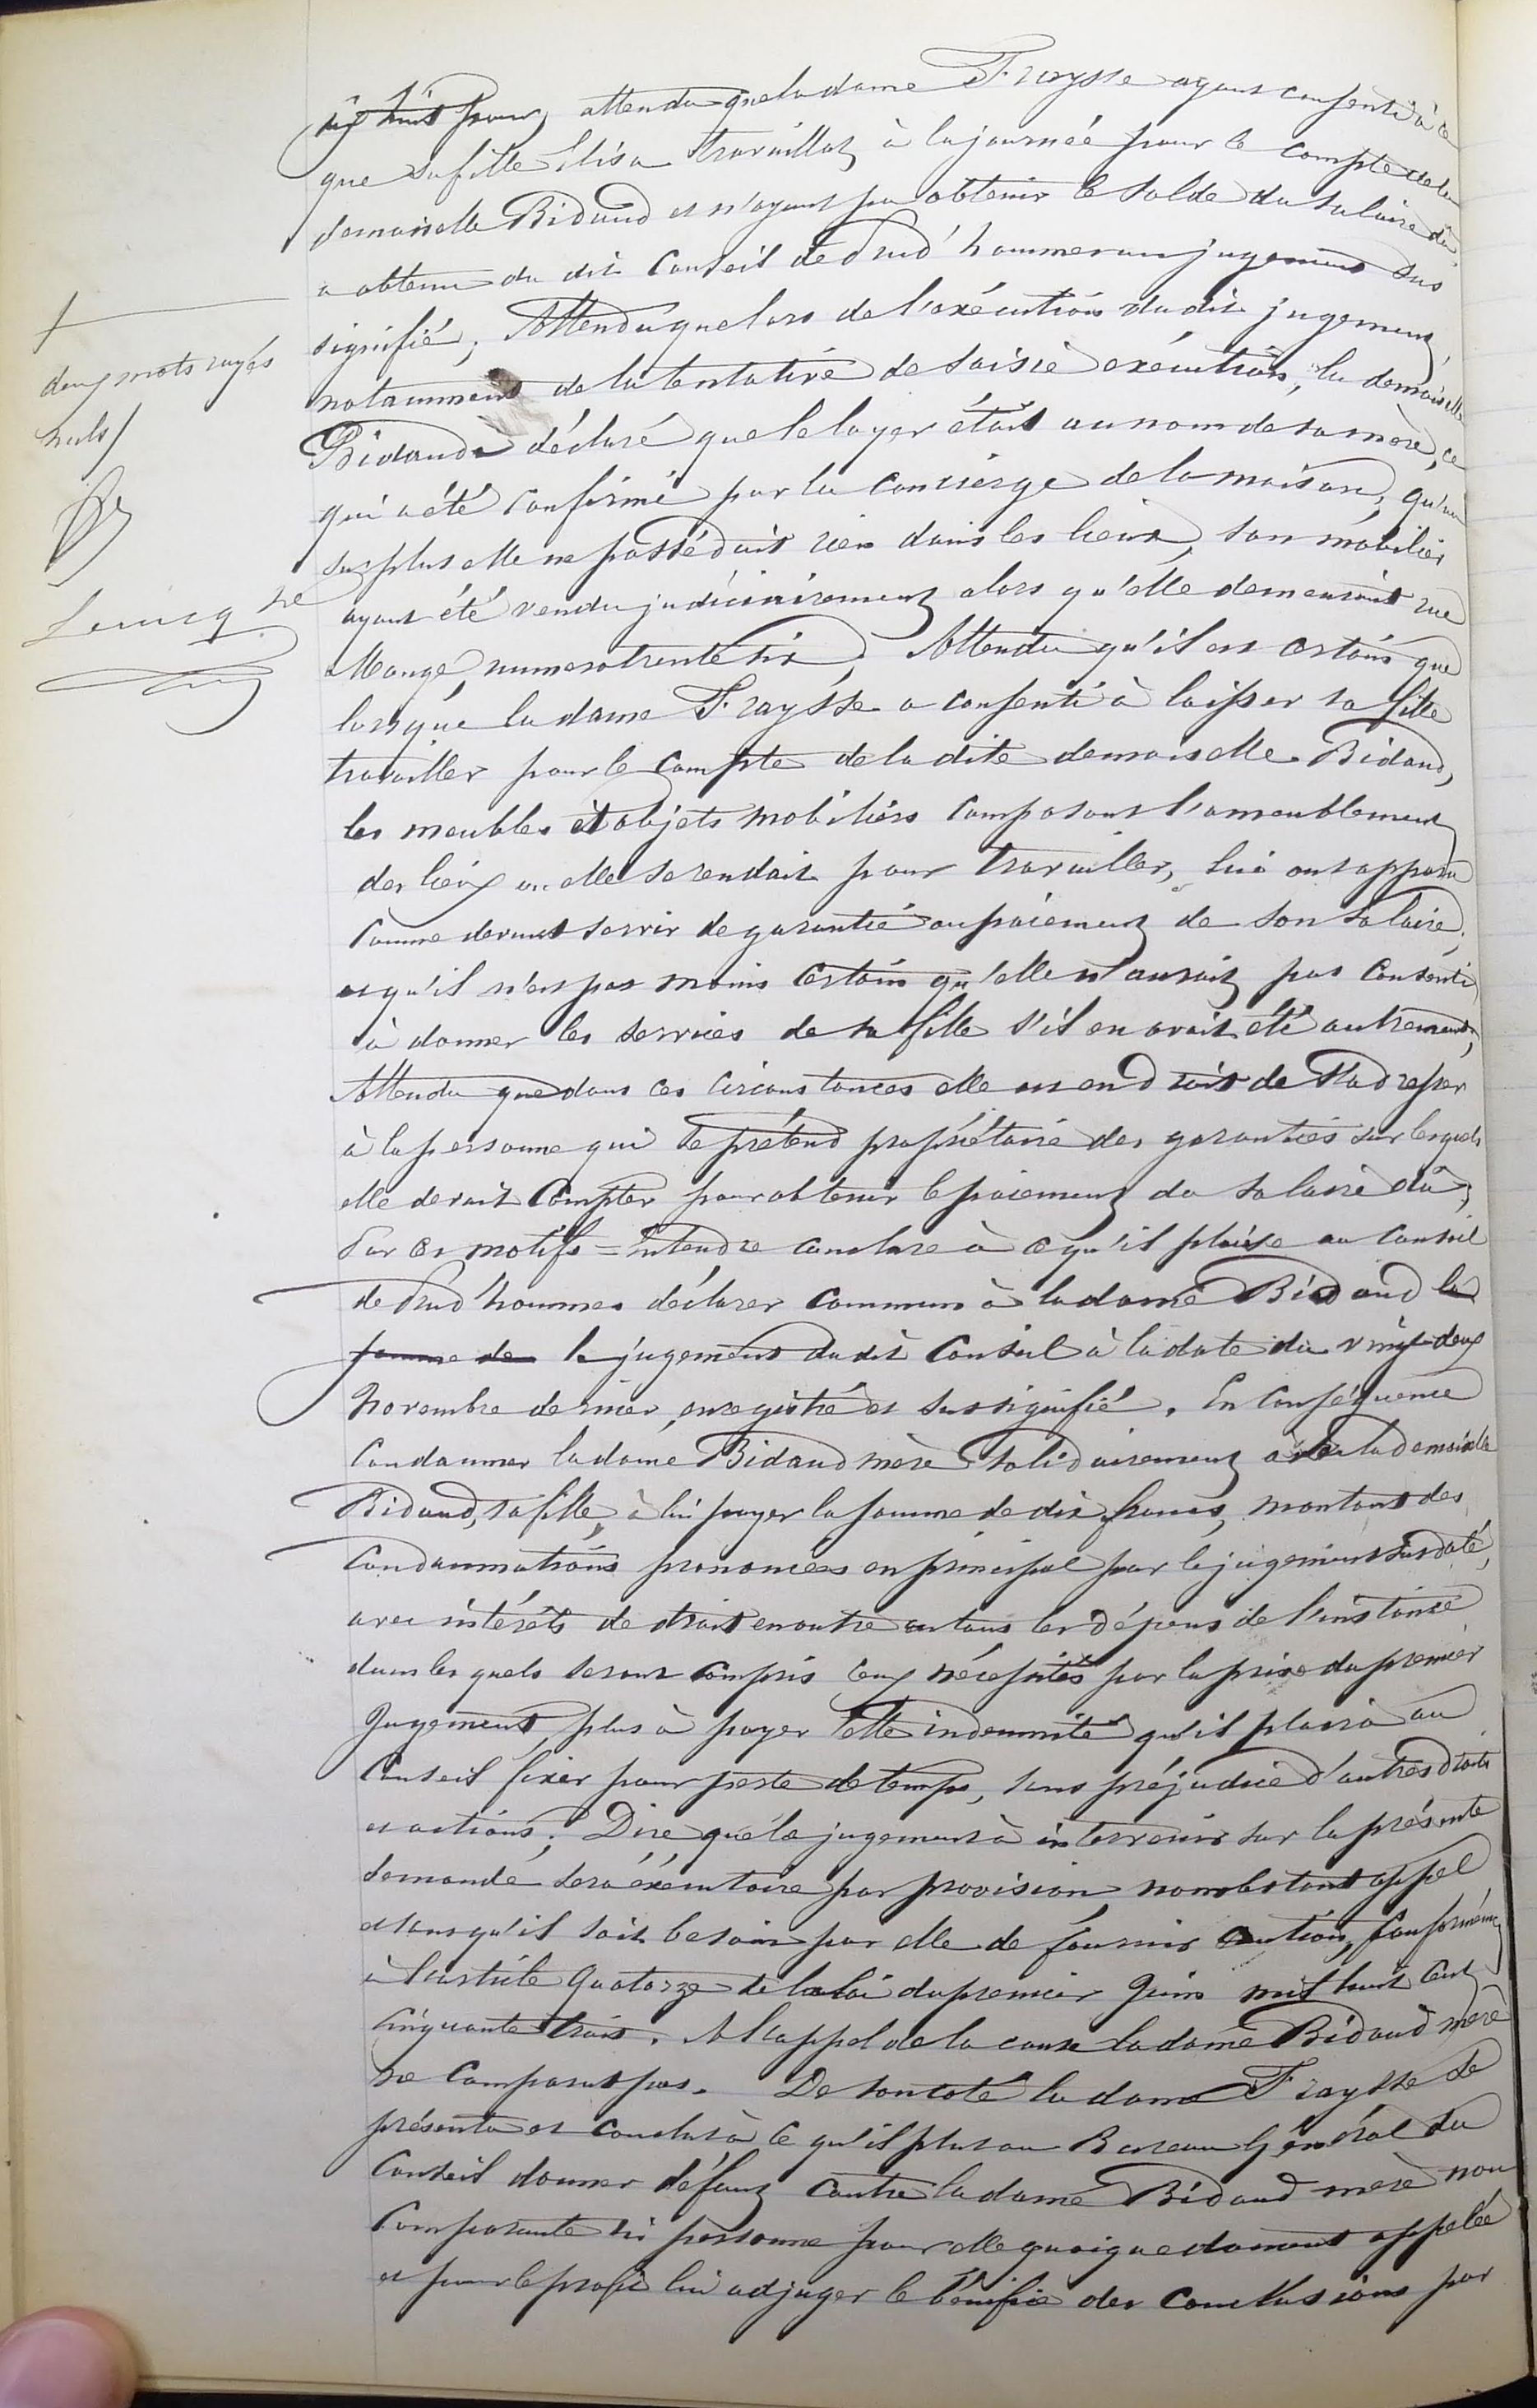 attendu que la dame Fraysse ayant consenti à ce
que sa fille Elisa travaillat à la journée pour le compte de la
demoiselle Bidaud et n'ayant pu obtenir le solde du salaire dû
a obtenu du dit Conseil de Prud'hommes un jugement sus
signifié; Attendu que lors de l'exécution du dit jugement,
notamment de la tentative de saisie exécution, la demoiselle
Bidaud a déclaré que le loyer était au nom de sa mère, ce
qui a été confirmé par la concierge de la maison, qu'au
surplus elle ne possédait rien dans les lieux, son mobilier
ayant été vendu judiciairement alors qu'elle demeurait rue
Monge, numero trente six; Attendu qu'il est certain que
lorsque la dame Fraysse a consenti à laisser sa fille
travailler pour le compte de la dite demoiselle Bidaud,
les meubles et objets mobiliers composant l'ameublement
des lieux ou elle se rendait pour travailler, lui ont apparu
comme devant servir de garantie au paiement de son salaire;
et qu'il n'est pas moins certain qu'elle n'aurait pas consenti
à donner les services de sa fille s'il en avait été autrement;
Attendu que dans ces circonstances elle est en droit de s'adresser
à la personne qui se prétend propriétaire des garanties sur lesquels
elle devait compter pour obtenir le paiement du salaire dû;
Par ces motifs = Entendre conclure à ce qu'il plaise au Conseil
de Prud'hommes déclarer commun à la dame Bidaud la
somme de le jugement du dit Conseil à la date du vingt-deux
Novembre dernier, enregistré et sus signifié. En conséquence
Condamner la dame Bidaud mère solidairement avec la demoiselle
Bidaud, sa fille, à lui payer la somme de dix francs, montant des
condamnations prononcées en principal par le jugement sus daté,
avec intérêts de droit en outre en tous les dépens de l'instance
dans lesquels seront compris ceux nécessités par la prise du premier
Jugement, plus à payer telle indemnité qu'il plaira au
Conseil fixer pour perte de temps, sans préjudice d'autres droits
et actions; Dire que le jugement à intervenir sur la présente
demande sera éxécutoire par provision nonobstant appel
et sans qu'il soit besoin par elle de fournir caution, conformément
à l'article quatorze de la loi du premier Juin mil huit cent
cinquante trois. A l'appel de la cause la dame Bidaud mère
ne comparut pas. De son coté la dame Fraysse se
présenta et conclut à ce qu'il plut au Bureau Général du
Conseil donner défaut contre la dame Bidaud mère non
comparante ni personne pour elle quoique dument appelée
et pour le profit lui adjuger le bénéfice des conclusions par
deux mots rayés
nuls/
Lecucq